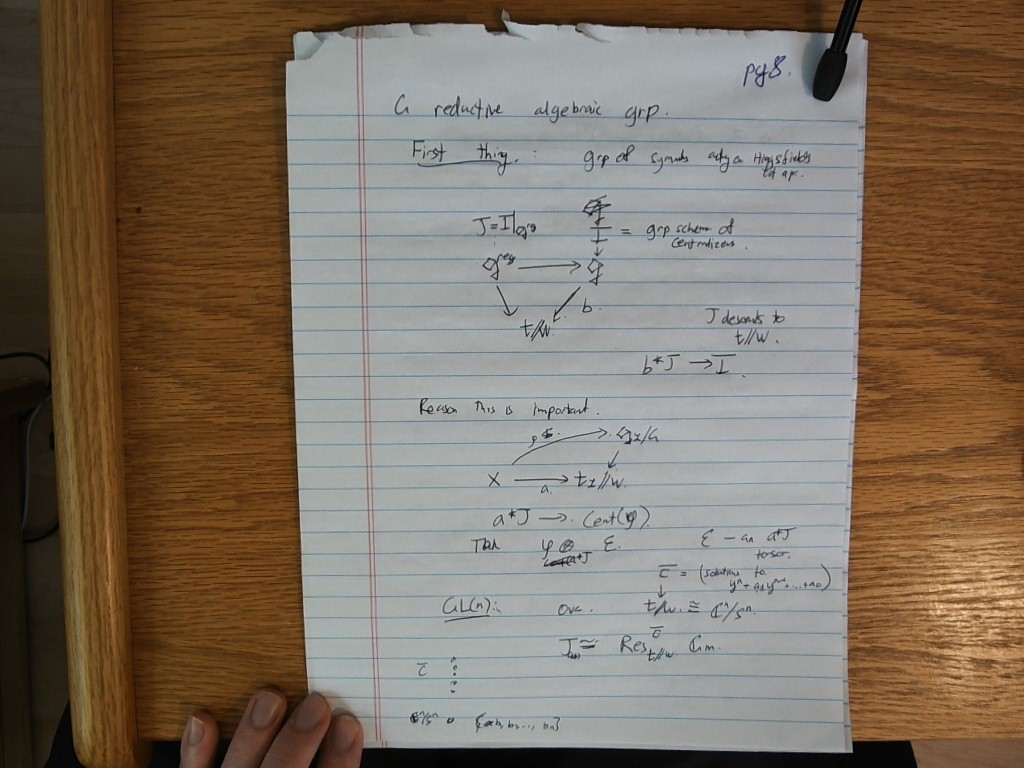 pg 8.
G reductive algebraic grp.
First thing. : grp of symms acting on Higgs fields
J = I|g^reg
I = grp scheme of
centralizers.
g^reg → g
b
t//W.
J descends to
t//W.
b*J → I.
Reason this is important.
X → t_L//W.
a.
a*J → Cent(φ).
Then φ ⊗ E. E - an a*J
a*J torsor.
C̄ = (solutions to
y^n + a_1 y^{n-1} + ... + a_0)
GL(n): Over. t//W. ≅ C^n/S^n.
J ≅ Res^{C̄}_{t//W} G_m.
C̄
C^n/S^n {b_1, b_2, ..., b_n}